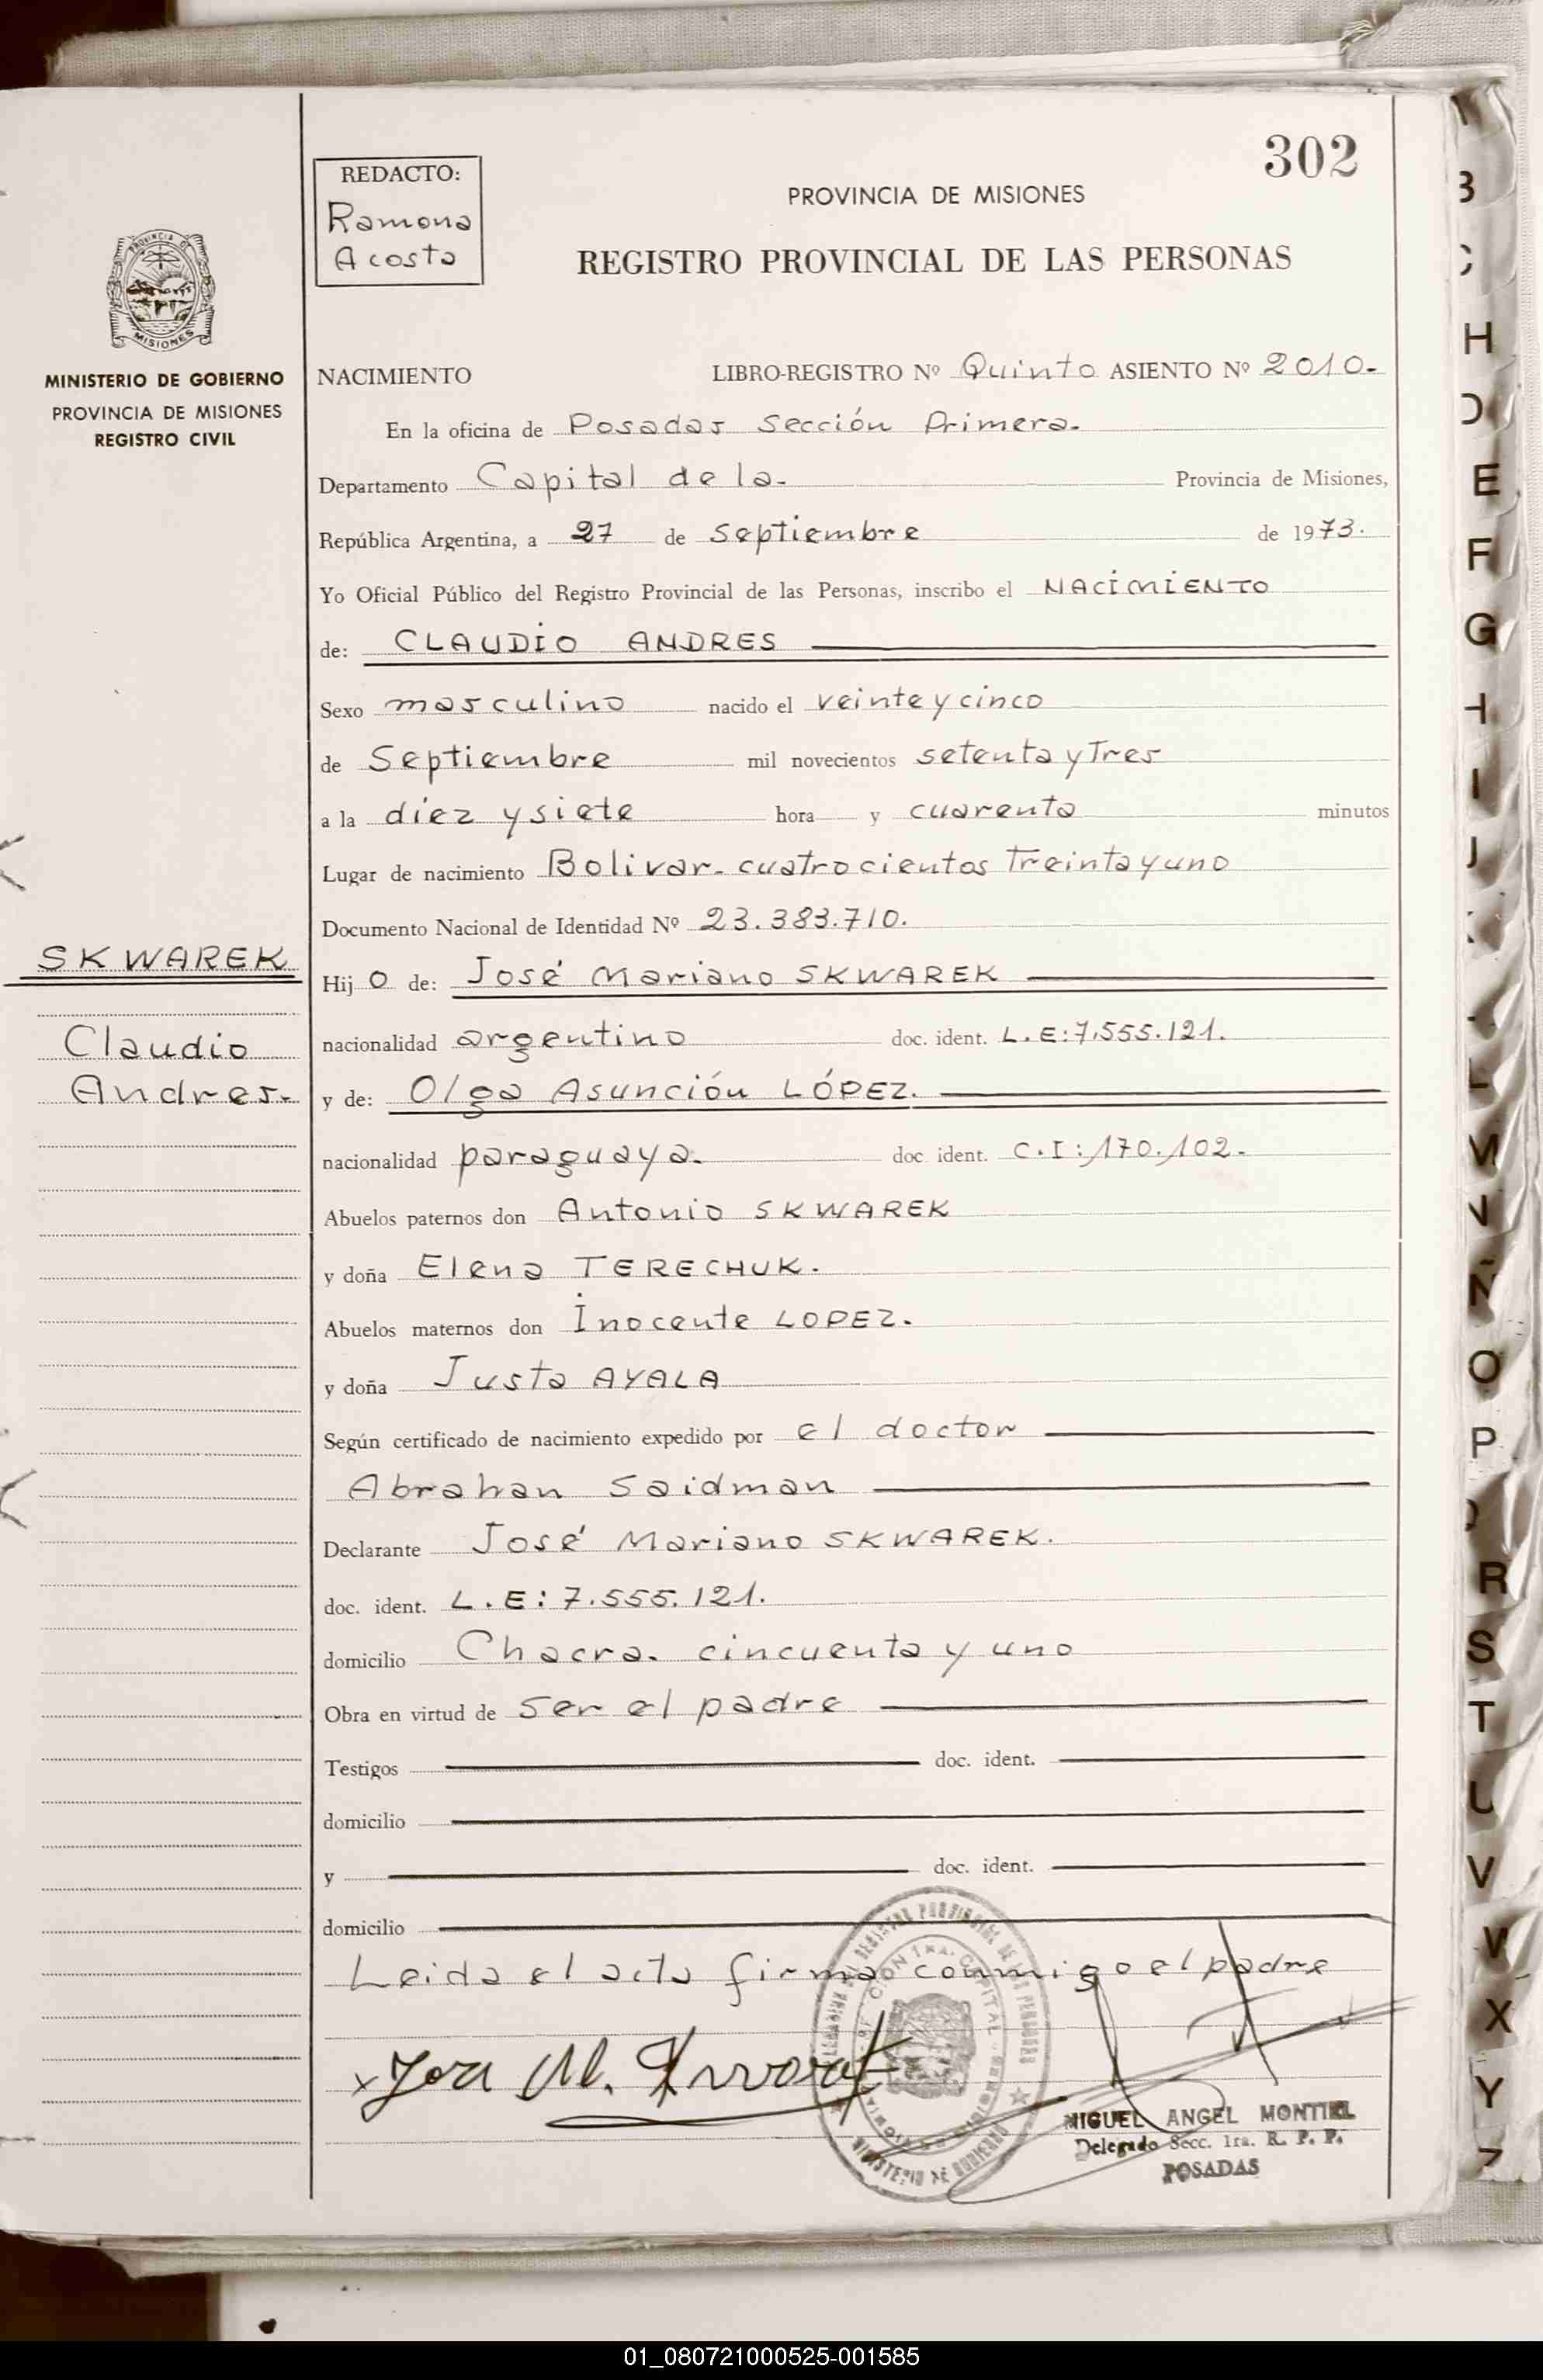 302
REDACTO:
Ramona
Acosta
PROVINCIA DE MISIONES
REGISTRO PROVINCIAL DE LAS PERSONAS
PROVINCIA DE
MISIONES
MINISTERIO DE GOBIERNO
PROVINCIA DE MISIONES
REGISTRO CIVIL
NACIMIENTO LIBRO-REGISTRO Nº Quinto ASIENTO Nº 2010-
En la oficina de Posadas Sección Primera.
Departamento Capital de la- Provincia de Misiones,
República Argentina, a 27 de septiembre de 1973.
Yo Oficial Público del Registro Provincial de las Personas, inscribo el NACIMIENTO
de: CLAUDIO ANDRES
Sexo masculino nacido el veinte y cinco
de Septiembre mil novecientos setenta y Tres
a la diez y siete hora y cuarenta minutos
Lugar de nacimiento Bolivar- cuatrocientos Treinta y uno
Documento Nacional de Identidad Nº 23.383.710.
SKWAREK
Hijo de: José Mariano SKWAREK
Claudio
Andres-
nacionalidad argentino doc. ident. L.E:7.555.121.
y de: Olga Asunción LÓPEZ.
nacionalidad paraguaya- doc ident. C.I:170.102-
Abuelos paternos don Antonio SKWAREK
y doña Elena TERECHUK.
Abuelos maternos don Inocente LOPEZ.
y doña Justa AYALA
Según certificado de nacimiento expedido por el doctor
Abrahan Saidman
Declarante José Mariano SKWAREK.
doc. ident. L.E:7.555.121.
domicilio Chacra. cincuenta y uno
Obra en virtud de ser el padre
Testigos doc. ident.
domicilio
y doc. ident.
domicilio
Leida el acta firma conmigo el padre
MIGUEL ANGEL MONTIEL
Delegado Secc. 1ra. R. P. P.
POSADAS
MINISTERIO DE GOBIERNO
B
C
H
D
E
F
G
H
I
J
L
M
N
Ñ
O
P
R
S
T
U
V
W
X
Y
Z
01_080721000525-001585